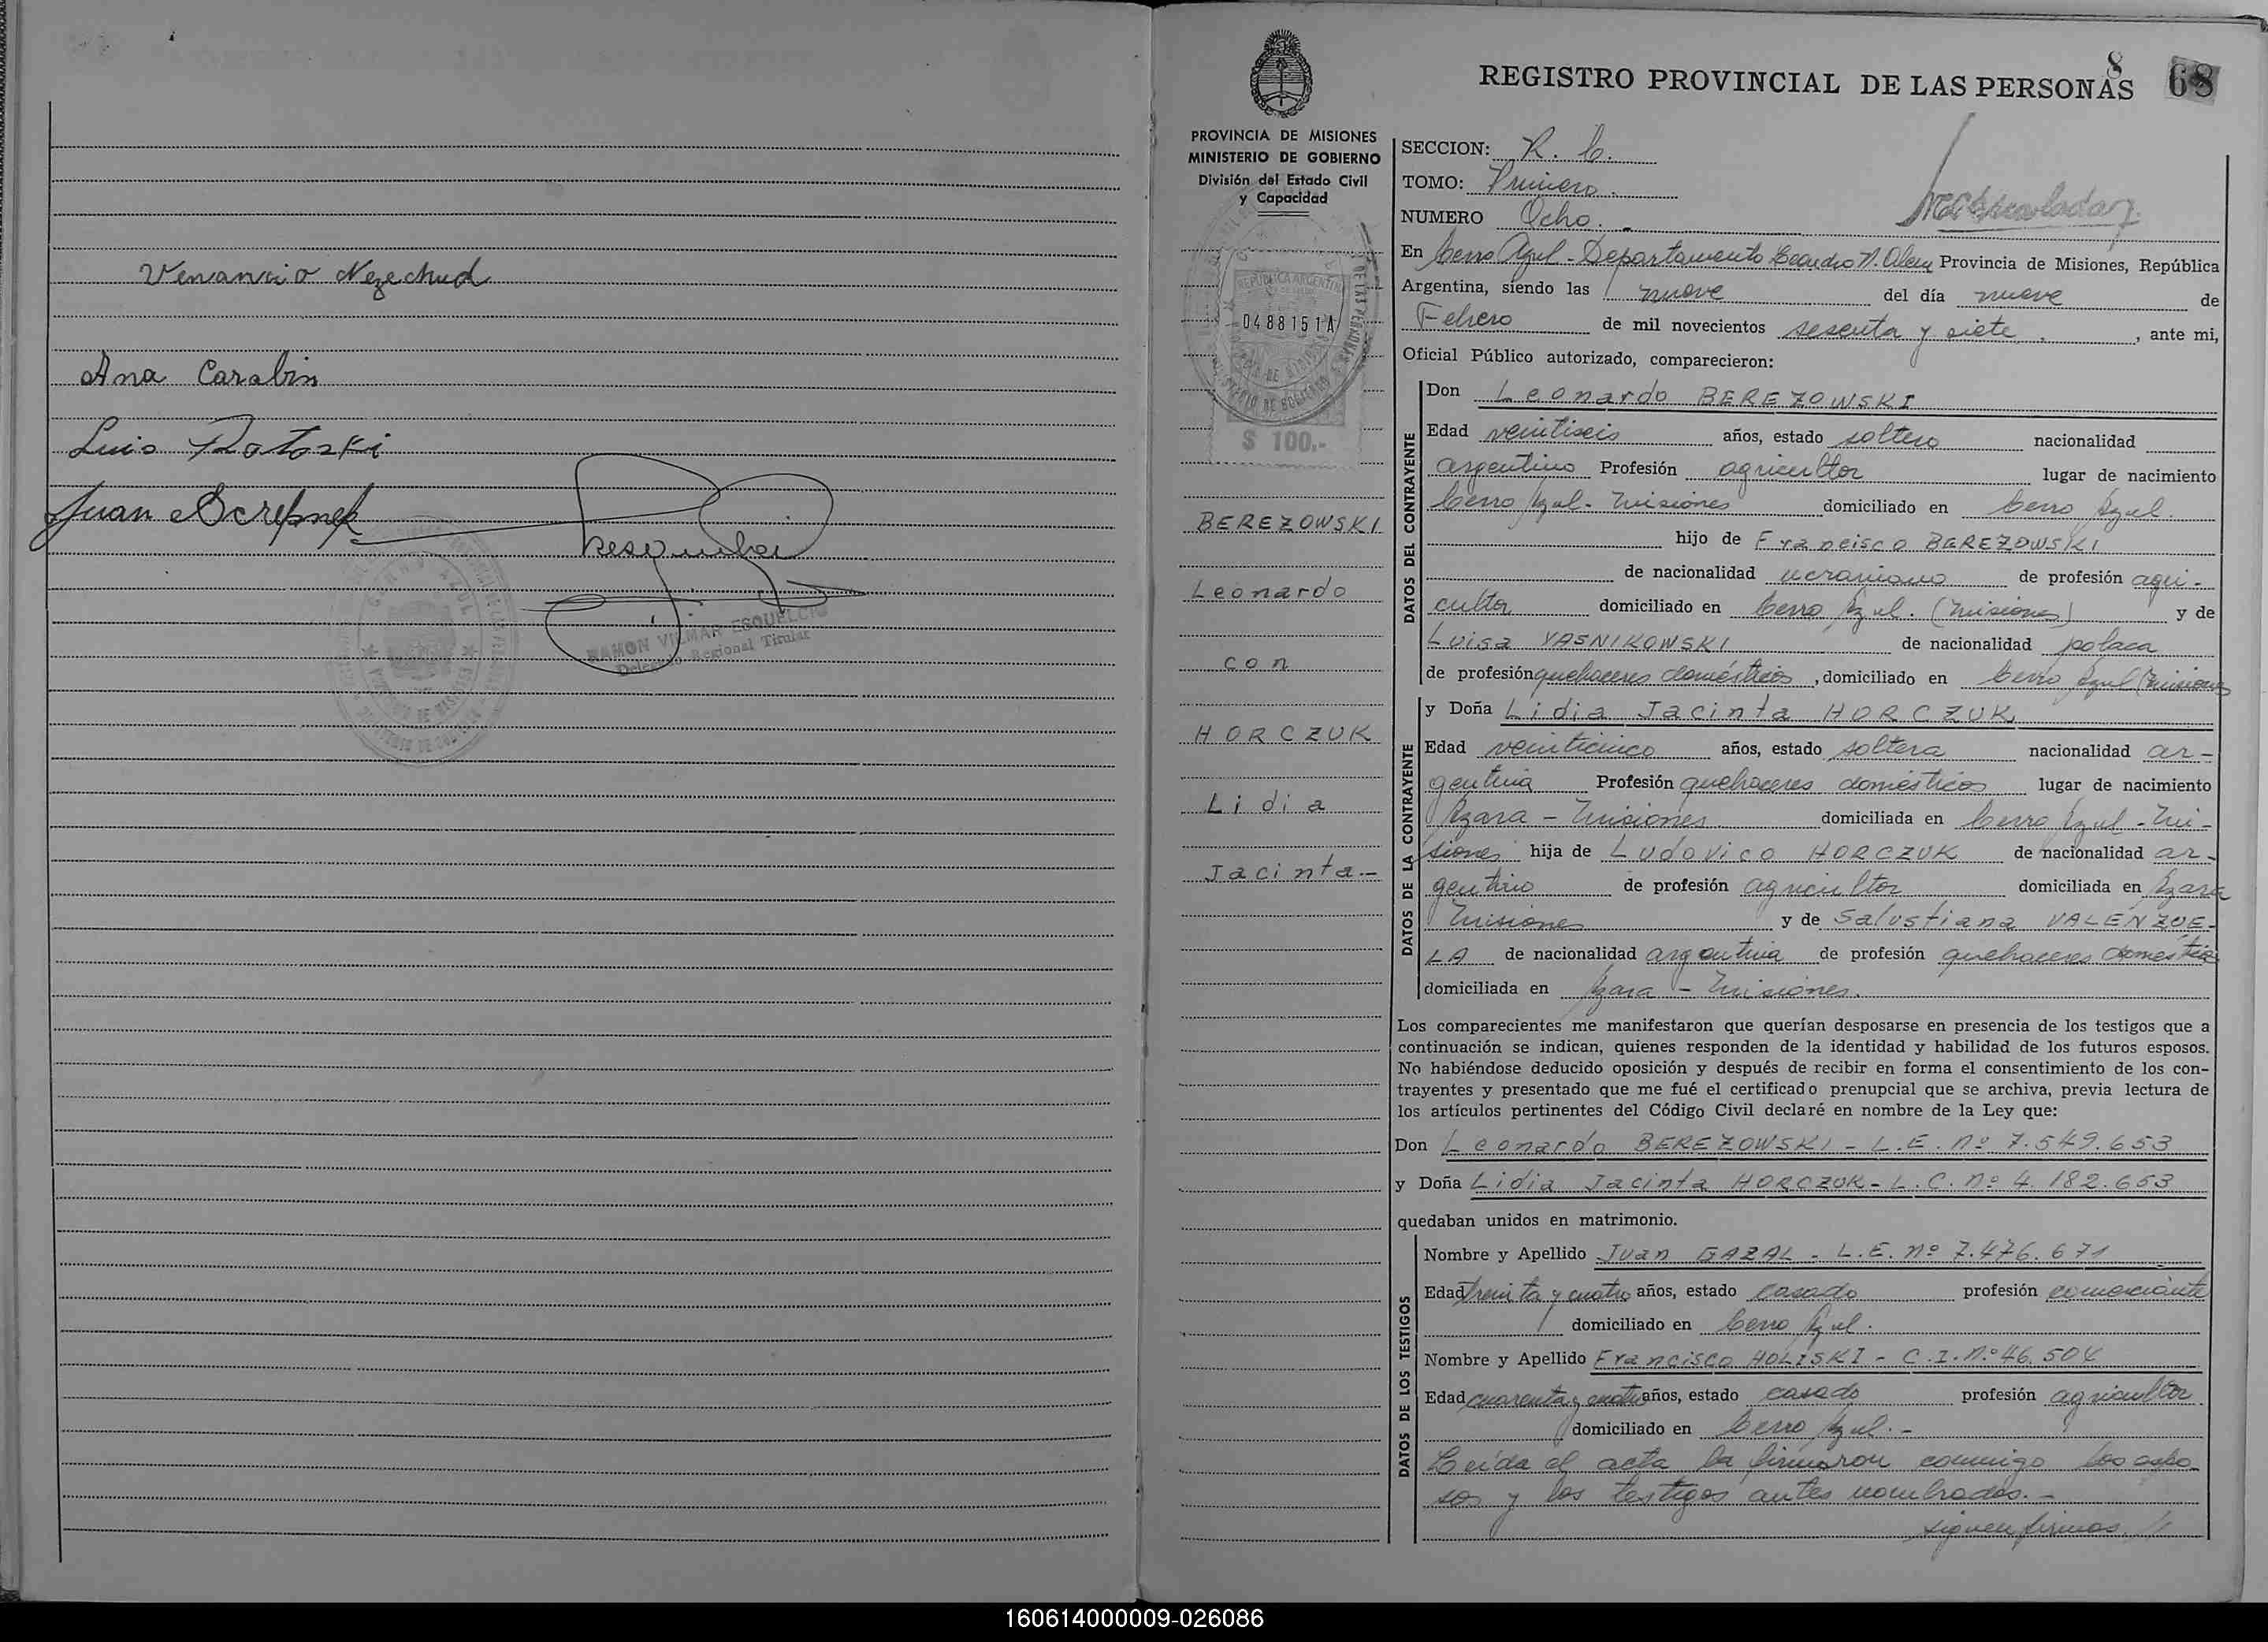 Venancio Nezechud
Ana Carabin
Luis Ratoski
Juan Screpnek
CERRO AZUL
RAMON VILMAR ESQUELCIO
Delegado Regional Titular
REGISTRO PROVINCIAL DE LAS PERSONAS
8
68
PROVINCIA DE MISIONES
MINISTERIO DE GOBIERNO
División del Estado Civil
y Capacidad
REPUBLICA ARGENTINA
0488151A
$ 100.-
BEREZOWSKI
Leonardo
con
HORCZUK
Lidia
Jacinta.-
SECCION: R. C.
TOMO: Primero.
NUMERO Ocho.
En Cerro Azul - Departamento Leandro N. Alem Provincia de Misiones, República
Argentina, siendo las nueve del día nueve de
Febrero de mil novecientos sesenta y siete, ante mi,
Oficial Público autorizado, comparecieron:
DATOS DEL CONTRAYENTE
Don Leonardo BEREZOWSKI
Edad veintiseis años, estado soltero nacionalidad
argentino Profesión agricultor lugar de nacimiento
Cerro Azul - Misiones domiciliado en Cerro Azul.
hijo de Francisco BEREZOWSKI
de nacionalidad ucraniano de profesión agri-
cultor domiciliado en Cerro Azul. (Misiones) y de
Luisa YASNIKOWSKI de nacionalidad polaca
de profesión quehaceres domésticos, domiciliado en Cerro Azul (Misiones
DATOS DE LA CONTRAYENTE
y Doña Lidia Jacinta HORCZUK
Edad veinticinco años, estado soltera nacionalidad ar-
gentina Profesión quehaceres domésticos lugar de nacimiento
Azara - Misiones domiciliada en Cerro Azul - Mi-
siones hija de Ludovico HORCZUK de nacionalidad ar-
gentino de profesión agricultor domiciliada en Azara
Misiones y de Salustiana VALENZUE-
LA de nacionalidad argentina de profesión quehaceres domésticos
domiciliada en Azara - Misiones.
Los comparecientes me manifestaron que querían desposarse en presencia de los testigos que a
continuación se indican, quienes responden de la identidad y habilidad de los futuros esposos.
No habiéndose deducido oposición y después de recibir en forma el consentimiento de los con-
trayentes y presentado que me fué el certificado prenupcial que se archiva, previa lectura de
los artículos pertinentes del Código Civil declaré en nombre de la Ley que:
Don Leonardo BEREZOWSKI - L.E. nº 7.549.653
y Doña Lidia Jacinta HORCZUK - L.C. nº 4.182.653
quedaban unidos en matrimonio.
DATOS DE LOS TESTIGOS
Nombre y Apellido Juan GAZAL - L.E. nº 7.476.671
Edad treinta y cuatro años, estado casado profesión comerciante
domiciliado en Cerro Azul.
Nombre y Apellido Francisco HOLISKI - C.I. nº 46.504
Edad cuarenta y cuatro años, estado casado profesión agricultor
domiciliado en Cerro Azul. -
Leída el acta la firmaron conmigo los espo-
sos y los testigos antes nombrados. -
siguen firmas //
160614000009-026086